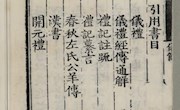 引用書目
儀禮
儀禮經傳通解
禮記註疏
禮記纂言
春秋左氏公羊傳
開元禮
漢書